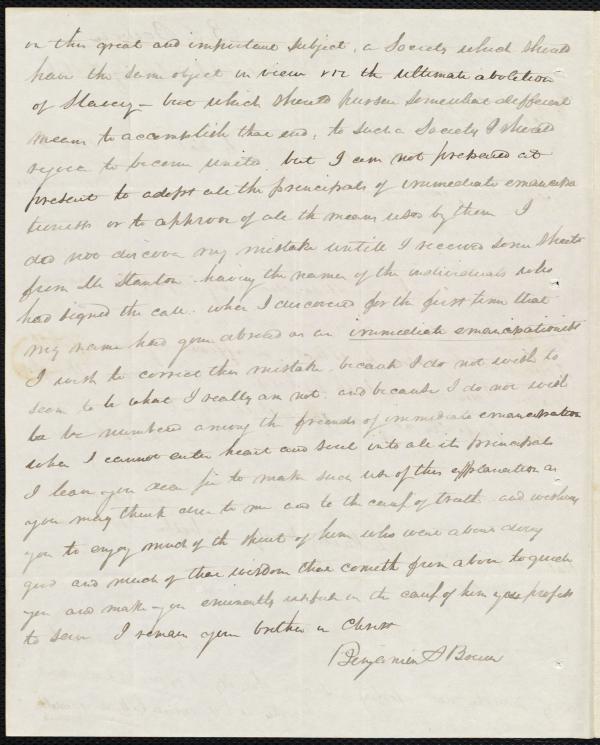 on this great and important subject, a Society which should
have the same object in view viz the ultimate abolition
of Slavery – but which should pursue somewhat different
means to accomplish that end, to such a Society I should
rejoice to become united. but I am not prepared at
present to adopt all the principals of immediate emancipa
tionists or to approve of all the means used by them I
did not discover my mistake untill I received some sheets
from Mr Stanton having the names of the individuals who
had signed the call. when I discovered for the first time that
my name had gone abroad as an immediate emancipationist
I wish to correct this mistake, because I do not wish to
seem to be what I really am not. and because I do not wish
to be numbered among the friends of immediate emancipation
when I cannot enter heart and soul into all its principals
I leave you dear Sir to make such use of this explanation as
you may think due to me and to the cause of truth. and wishing
you to enjoy much of the spirit of him who went about doing
good and much of that wisdom that cometh from above to guide
you and make you eminently useful in the cause of him you profess
to serve I remain your brother in Christ
Benjamin S